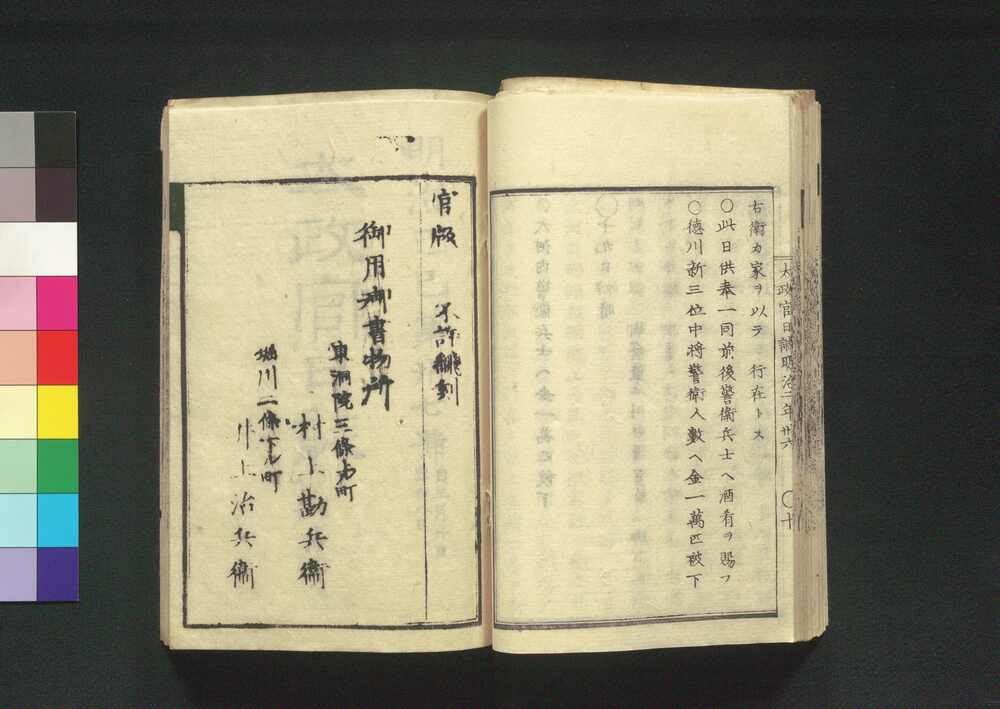 右衛カ家ヲ以テ 行在トス
〇此日供奉一同前後警衛兵士ヘ酒肴ヲ賜フ
〇徳川新三位中将警衛人數ヘ金一萬匹被下
太政官日誌明治二年廿六
〇十
官版 不許翻刻
御用御書物所
東洞院三條上ル町
村上勘兵衞
堀川二條下ル町
井上治兵衞